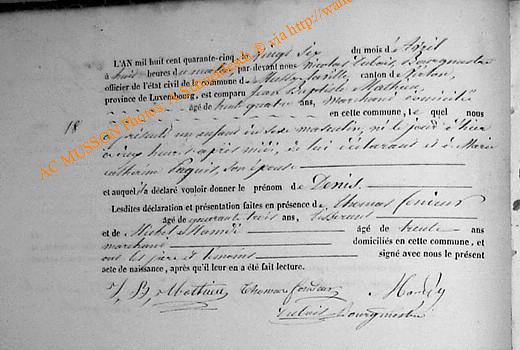 L'AN mil huit cent quarante-cinq, le vingt six du mois d'Avril
à huit heures du matin, par devant nous Nicolas Dubois, Bourgmestre
officier de l'état civil de la commune de Mussy-la-ville, canton de Virton,
province de Luxembourg, est comparu Jean Baptiste Mathieu,
âgé de ans, marchand domicilié
18 en cette commune, lequel nous
a présenté un enfant du sexe masculin, né le jour d'hier
à cinq heures après midi, de lui déclarant et de Marie
Catherine son épouse
et auquel il a déclaré vouloir donner le prénom de Denis.
Lesdites déclaration et présentation faites en présence de Thomas
âgé de quarante trois ans, tisserant
et de Michel âgé de trente ans
marchand domiciliés en cette commune, et
ont les père et témoins signé avec nous le présent
acte de naissance, après qu'il leur en a été fait lecture.
J, B, Mathieu Thomas
Dubois Bourgmestre
AC MUSSON Photos via http://